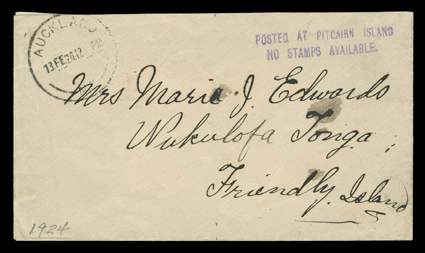 AUCKLAND
13FE2412 PM
POSTED AT PITCAIRN ISLAND
NO STAMPS AVAILABLE.
Mrs Marie J. Edwards
Nukulofa Tonga,
Friendly Island
1924